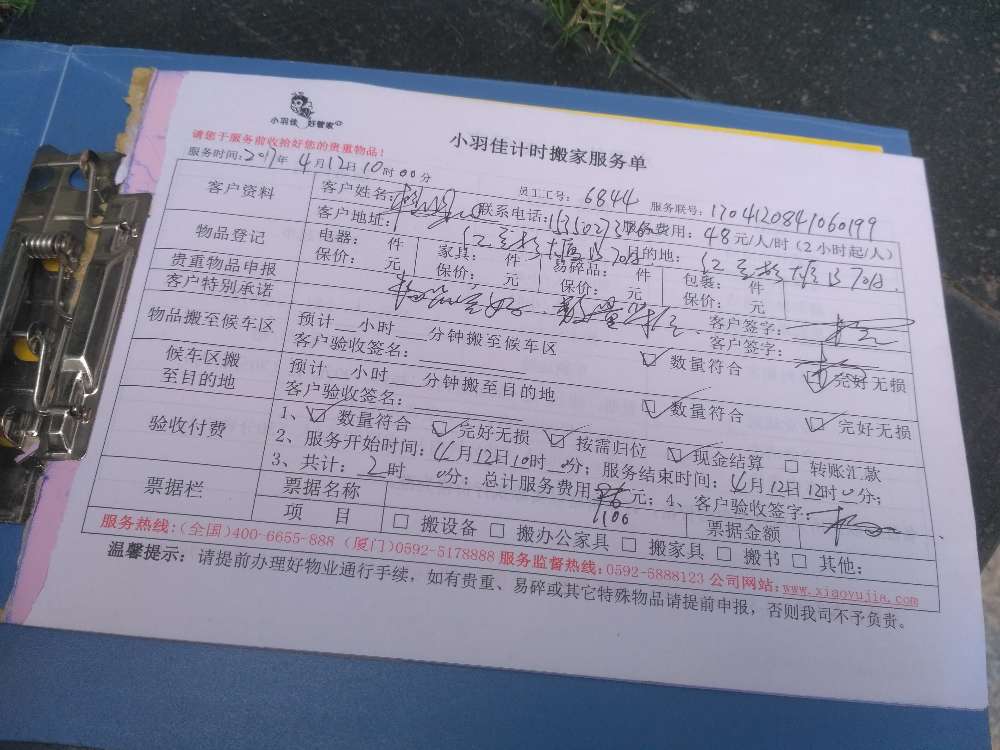 小羽佳 好管家
小羽佳计时搬家服务单
请您于服务前收拾好您的贵重物品!
服务时间:2017年4月12日10时00分 员工工号: 6844 服务联号:1704120841060199
客户资料 客户姓名: 联系电话: 服务费用: 48元/人/时(2小时起/人)
客户地址: 目的地:
物品登记 电器: 件 家具: 件 易碎品: 件 包裹: 件
保价: 元 保价: 元 保价: 元 保价: 元
贵重物品申报 客户签字:
客户特别承诺 客户签字:
物品搬至候车区 预计 小时 分钟搬至候车区 数量符合 完好无损
客户验收签名:
候车区搬至目的地 预计 小时 分钟搬至目的地 数量符合 完好无损
客户验收签名:
验收付费 1、 数量符合 完好无损 按需归位 现金结算 转账汇款
2、服务开始时间:4月12日10时0分; 服务结束时间:4月12日12时0分;
3、共计:2时0分; 总计服务费用 元; 4、客户验收签字:
1100
票据栏 票据名称 票据金额
项 目 搬设备 搬办公家具 搬家具 搬书 其他:
服务热线:(全国)400-6655-888 (厦门)0592-5178888 服务监督热线:0592-5888123 公司网站:www.xiaoyujia.com
温馨提示: 请提前办理好物业通行手续, 如有贵重、易碎或其它特殊物品请提前申报, 否则我司不予负责。